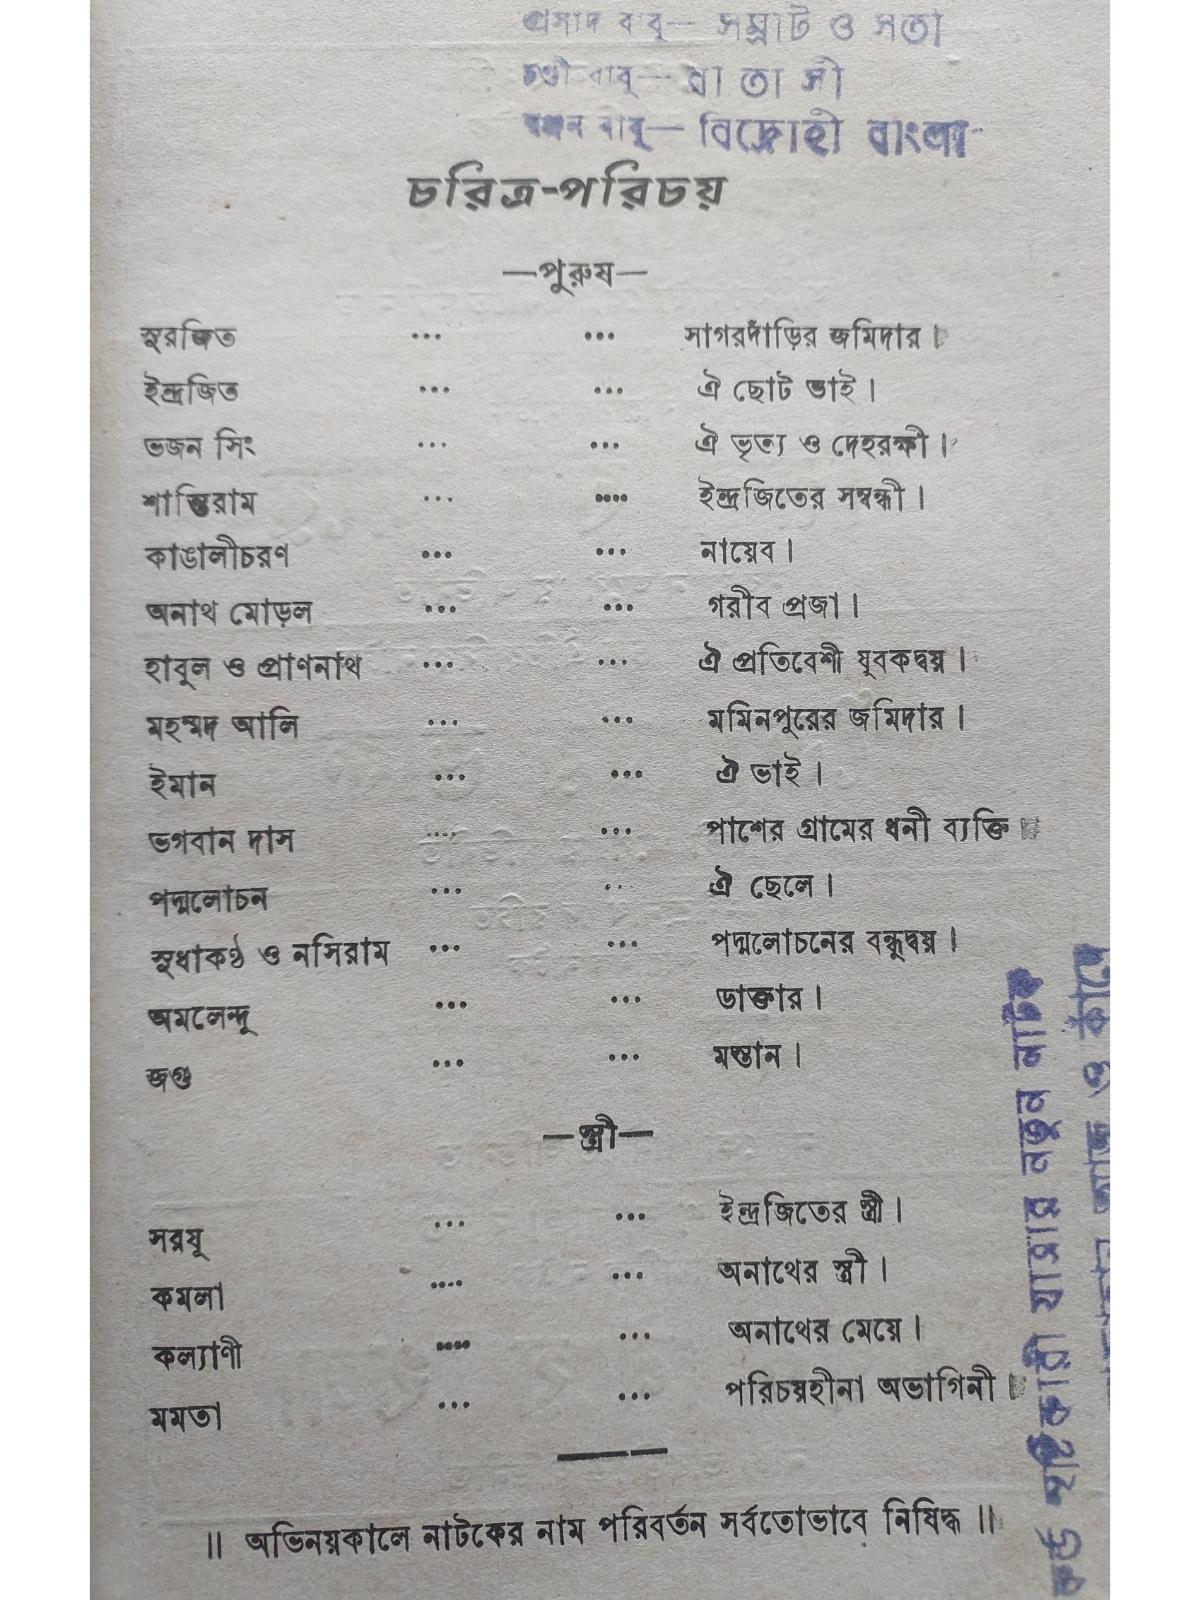 প্রসাদ বাবু— সম্রাট ও সতা
চণ্ডী বাবু— মা তা সী
রঞ্জন বাবু— বিদ্রোহী বাংলা
চরিত্র-পরিচয়
—পুরুষ—
সুরজিত ... ... সাগরদাঁড়ির জমিদার।
ইন্দ্রজিত ... ... ঐ ছোট ভাই।
ভজন সিং ... ... ঐ ভৃত্য ও দেহরক্ষী।
শান্তিরাম ... .... ইন্দ্রজিতের সম্বন্ধী।
কাঙালীচরণ ... ... নায়েব।
অনাথ মোড়ল ... ... গরীব প্রজা।
হাবুল ও প্রাণনাথ ... ... ঐ প্রতিবেশী যুবকদ্বয়।
মহম্মদ আলি ... ... মমিনপুরের জমিদার।
ইমান ... ... ঐ ভাই।
ভগবান দাস .... ... পাশের গ্রামের ধনী ব্যক্তি।
পদ্মলোচন ... ... ঐ ছেলে।
সুধাকণ্ঠ ও নসিরাম ... ... পদ্মলোচনের বন্ধুদ্বয়।
অমলেন্দু ... ... ডাক্তার।
জগু ... ... মস্তান।
—স্ত্রী—
সরযূ ... ... ইন্দ্রজিতের স্ত্রী।
কমলা .... ... অনাথের স্ত্রী।
কল্যাণী .... ... অনাথের মেয়ে।
মমতা ... ... পরিচয়হীনা অভাগিনী।
॥ অভিনয়কালে নাটকের নাম পরিবর্তন সর্বতোভাবে নিষিদ্ধ ॥
যাত্রার নতুন নাটক
আজ ও কাঁদে